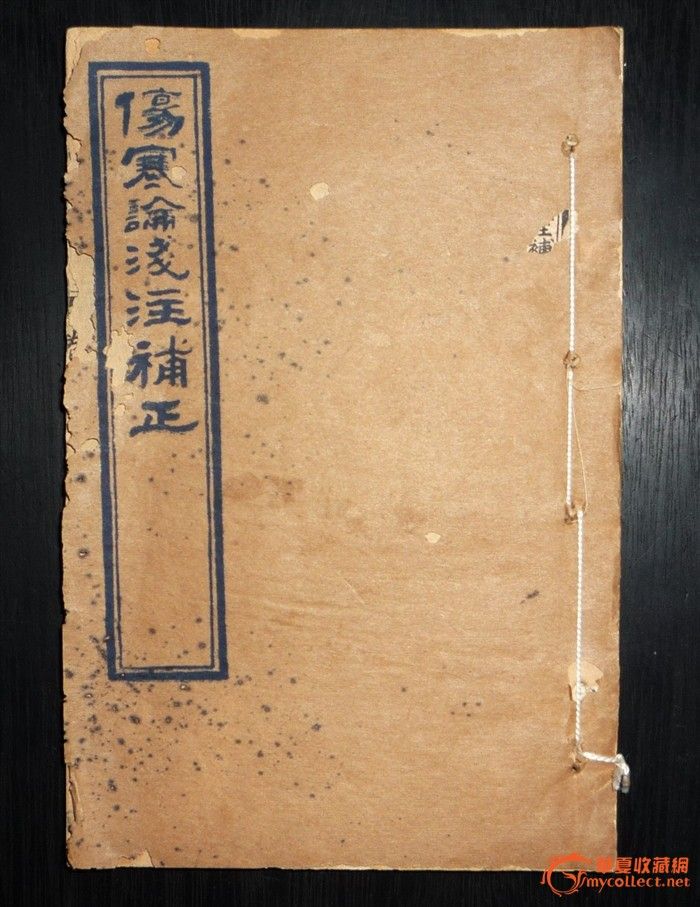 傷寒論淺注補正
注補
華夏收藏網
mycollect.net